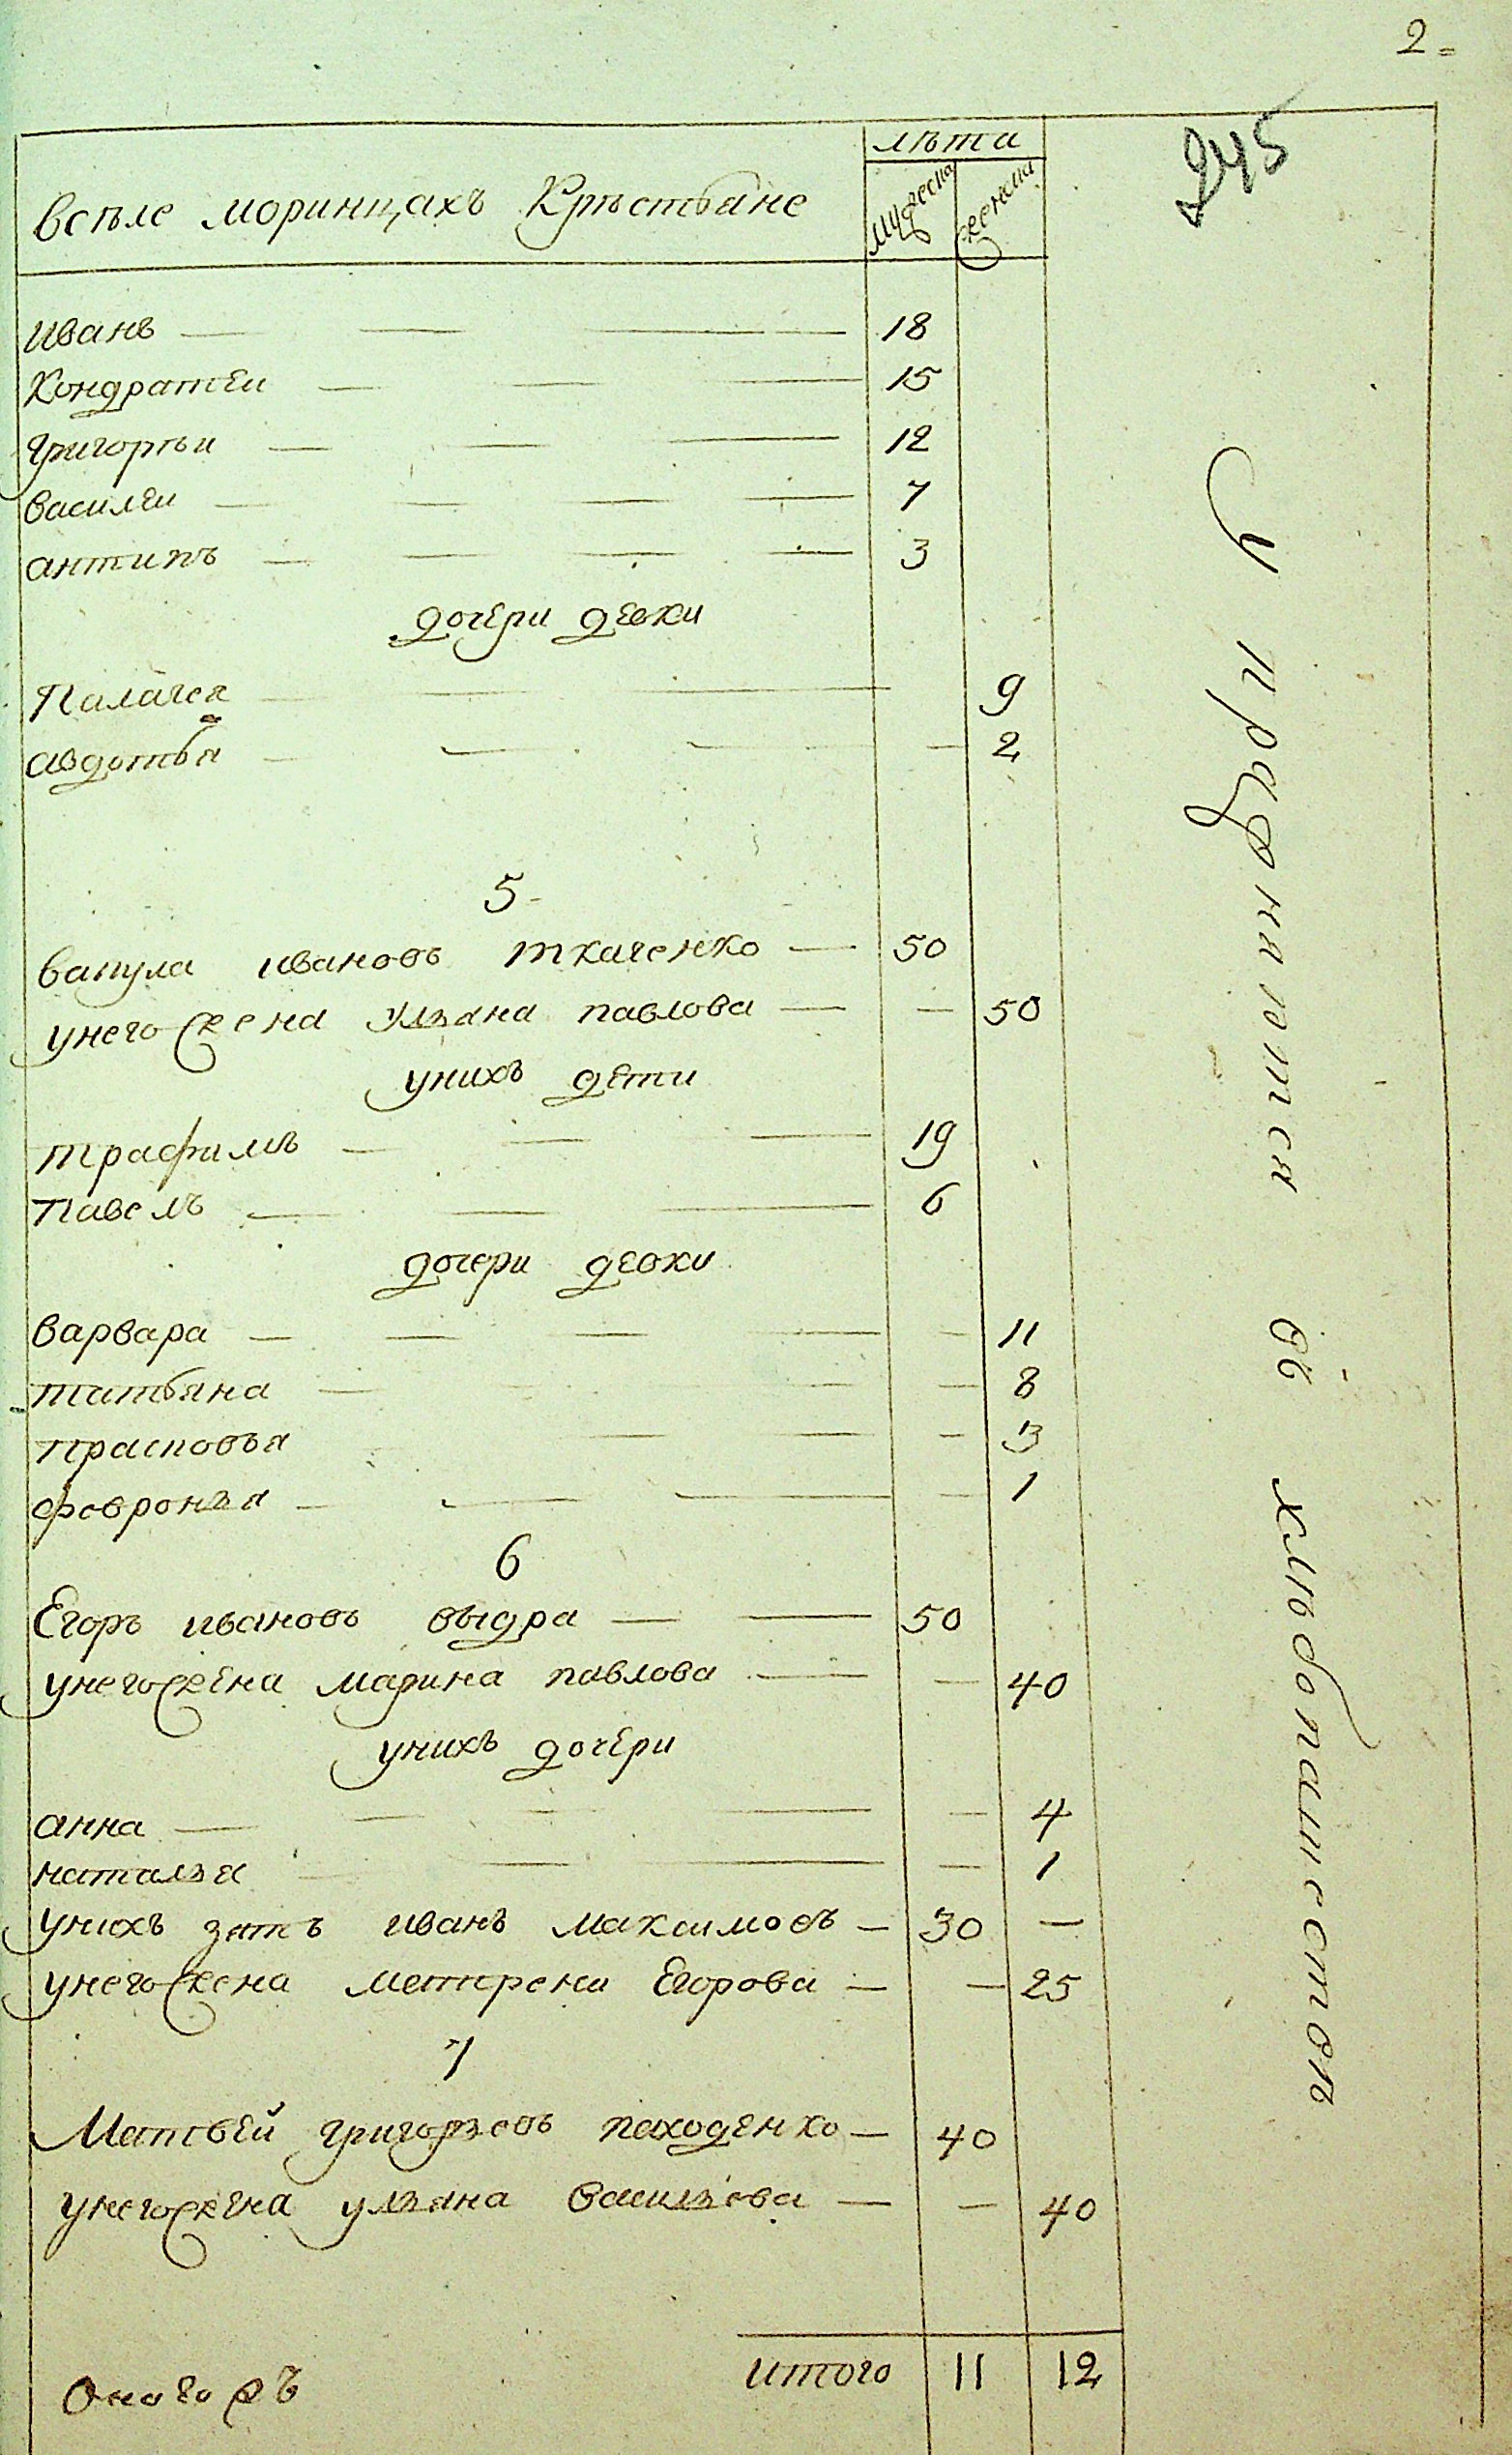 2
245
лѣта
мужеска
женска
всѣле моринцахъ Крѣстьяне
иванъ 18
Кондратеи 15
григорѣи 12
василеи 7
антипъ 3
дочери девки
Палагея 9
авдотья 2
5
вакула ивановъ ткаченко 50
унего жена ульяна павлова 50
унихъ дети
трафимъ 19
Павелъ 6
дочери девки
варвара 11
татьяна 8
прасковья 3
февронья 1
6
Егоръ ивановъ выдра 50
унего жена марина павлова 40
унихъ дочери
анна 4
наталья 1
унихъ зять иванъ максимовъ 30
унего жена матрена Егорова 25
7
Матвей григорьевъ находенко 40
унего жена ульяна васильева 40
итого 11 12
Оного
Упражняетса въ хлебопашестве